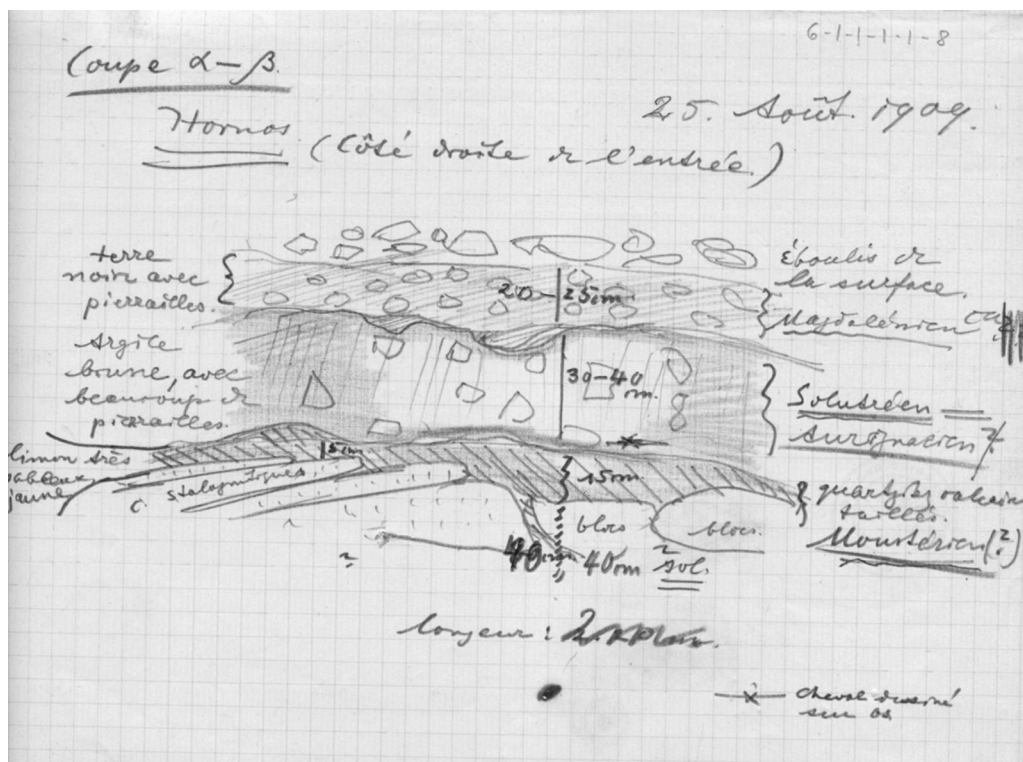 6-1-1-1-1-8
Coupe α-β.
25. Août. 1909.
Hornos
(Côté droite de l'entrée.)
terre
noire avec
pierrailles.
20-25cm
Éboulis de
la surface.
Magdalénien
Argile
brune, avec
beaucoup de
pierrailles.
30-40
cm.
Solutréen
Aurignacien?
limon très
sableux,
jaune
15cm
C. stalagmitiques
15cm
taillés.
blocs
blocs.
Moustérien(?)
?
40cm
40cm
?
sol.
longeur: 2
cheval dessiné
sur os